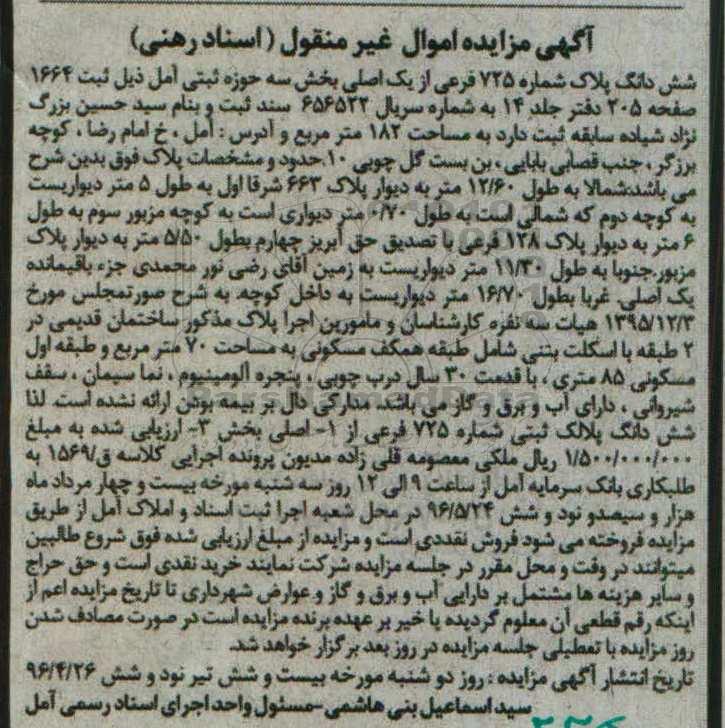 آگهی مزایده اموال غیر منقول (اسناد رهنی)
شش دانگ پلاک شماره ۷۲۵ فرعی از یک اصلی بخش سه حوزه ثبتی آمل ذیل ثبت ۱۶۶۴
صفحه ۲۰۵ دفتر جلد ۱۴ به شماره سریال ۶۵۶۵۲۲ سند ثبت و بنام سید حسین بزرگ
نژاد شیاده سابقه ثبت دارد به مساحت ۱۸۲ متر مربع و آدرس : آمل ، خ امام رضا ، کوچه
برزگر ، جنب قصابی بابایی ، بن بست گل چوبی ۱۰.حدود و مشخصات پلاک فوق بدین شرح
می باشد:شمالا به طول ۱۲/۶۰ متر به دیوار پلاک ۶۶۳ شرقا اول به طول ۵ متر دیواریست
به کوچه دوم که شمالی است به طول ۰/۷۰ متر دیواری است به کوچه مزبور سوم به طول
۶ متر به دیوار پلاک ۱۳۸ فرعی با تصدیق حق آبریز چهارم بطول ۵/۵۰ متر به دیوار پلاک
مزبور.جنوبا به طول ۱۱/۳۰ متر دیواریست به زمین آقای رضی نور محمدی جزء باقیمانده
یک اصلی. غربا بطول ۱۶/۷۰ متر دیواریست به داخل کوچه. به شرح صورتمجلس مورخ
۱۳۹۵/۱۲/۳ هیات سه نفره کارشناسان و مامورین اجرا پلاک مذکور ساختمان قدیمی در
۲ طبقه با اسکلت بتنی شامل طبقه همکف مسکونی به مساحت ۷۰ متر مربع و طبقه اول
مسکونی ۸۵ متری ، با قدمت ۳۰ سال درب چوبی ، پنجره آلومینیوم ، نما سیمان ، سقف
شیروانی ، دارای آب و برق و گاز می باشد. مدارکی دال بر بیمه بودن ارائه نشده است. لذا
شش دانگ پلالک ثبتی شماره ۷۲۵ فرعی از ۱- اصلی بخش ۳- ارزیابی شده به مبلغ
۱/۵۰۰/۰۰۰/۰۰۰ ریال ملکی معصومه قلی زاده مدیون پرونده اجرایی کلاسه ق/۱۵۶۹ به
طلبکاری بانک سرمایه آمل از ساعت ۹ الی ۱۲ روز سه شنبه مورخه بیست و چهار مرداد ماه
هزار و سیصدو نود و شش ۹۶/۵/۲۴ در محل شعبه اجرا ثبت اسناد و املاک آمل از طریق
مزایده فروخته می شود فروش نقددی است و مزایده از مبلغ ارزیابی شده فوق شروع طالبین
میتوانند در وقت و محل مقرر در جلسه مزایده شرکت نمایند خرید نقدی است و حق حراج
و سایر هزینه ها مشتمل بر دارایی آب و برق و گاز و عوارض شهرداری تا تاریخ مزایده اعم از
اینکه رقم قطعی آن معلوم گردیده یا خیر بر عهده برنده مزایده است در صورت مصادف شدن
روز مزایده با تعطیلی جلسه مزایده در روز بعد برگزار خواهد شد.
تاریخ انتشار آگهی مزایده : روز دو شنبه مورخه بیست و شش تیر نود و شش ۹۶/۴/۲۶
سید اسماعیل بنی هاشمی-مسئول واحد اجرای اسناد رسمی آمل